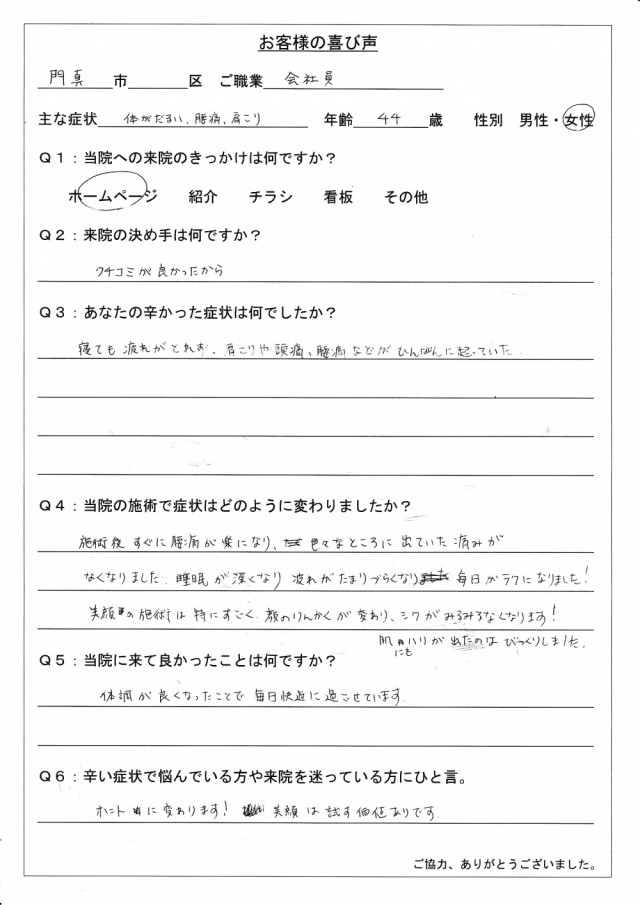 お客様の喜び声
門真 市 区 ご職業 会社員
主な症状 体がだるい、腰痛、肩こり 年齢 44 歳 性別 男性・女性
Q1：当院への来院のきっかけは何ですか？
ホームページ 紹介 チラシ 看板 その他
Q2：来院の決め手は何ですか？
クチコミが良かったから
Q3：あなたの辛かった症状は何でしたか？
寝ても疲れがとれず、肩こりや頭痛、腰痛などがひんぱんに起っていた.
Q4：当院の施術で症状はどのように変わりましたか？
施術後すぐに腰痛が楽になり、色々なところに出ていた痛みが
なくなりました. 睡眠が深くなり 疲れがたまりづらくなり 毎日がラクになりました！
美顔の施術は特にすごく、顔のりんかくが変わり、シワがみるみるなくなります！
肌にもハリが出たのはびっくりしました.
Q5：当院に来て良かったことは何ですか？
体調が良くなったことで毎日快適に過ごせています
Q6：辛い症状で悩んでいる方や来院を迷っている方にひと言。
ホントに変わります！ 美顔は試す価値ありです.
ご協力、ありがとうございました。